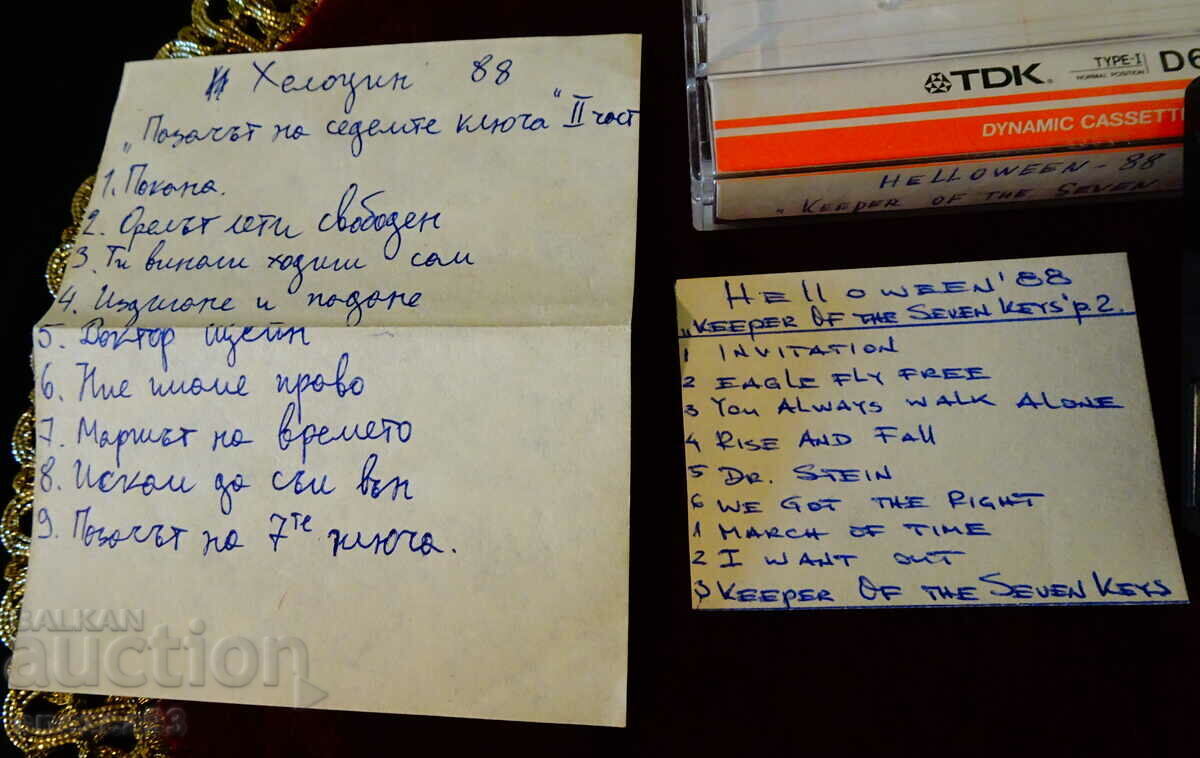 Хелоуин 88
„Пазачът на седемте ключа" II част
1. Покана.
2. Орелът лети свободен
3. Ти винаги ходиш сам
4. Издигане и падане
5. Доктор Щейн
6. Ние имаме право
7. Маршът на времето
8. Искам да съм вън
9. Пазачът на 7те ключа.
TDK TYPE-I D6
NORMAL POSITION
DYNAMIC CASSETTE
HELLOWEEN - 88
„KEEPER OF THE SEVEN
HELLOWEEN' 88
„KEEPER OF THE SEVEN KEYS' p.2.
1 INVITATION
2 EAGLE FLY FREE
3 YOU ALWAYS WALK ALONE
4 RISE AND FALL
5 DR. STEIN
6 WE GOT THE RIGHT
1 MARCH OF TIME
2 I WANT OUT
3 KEEPER OF THE SEVEN KEYS
BALKAN
auction